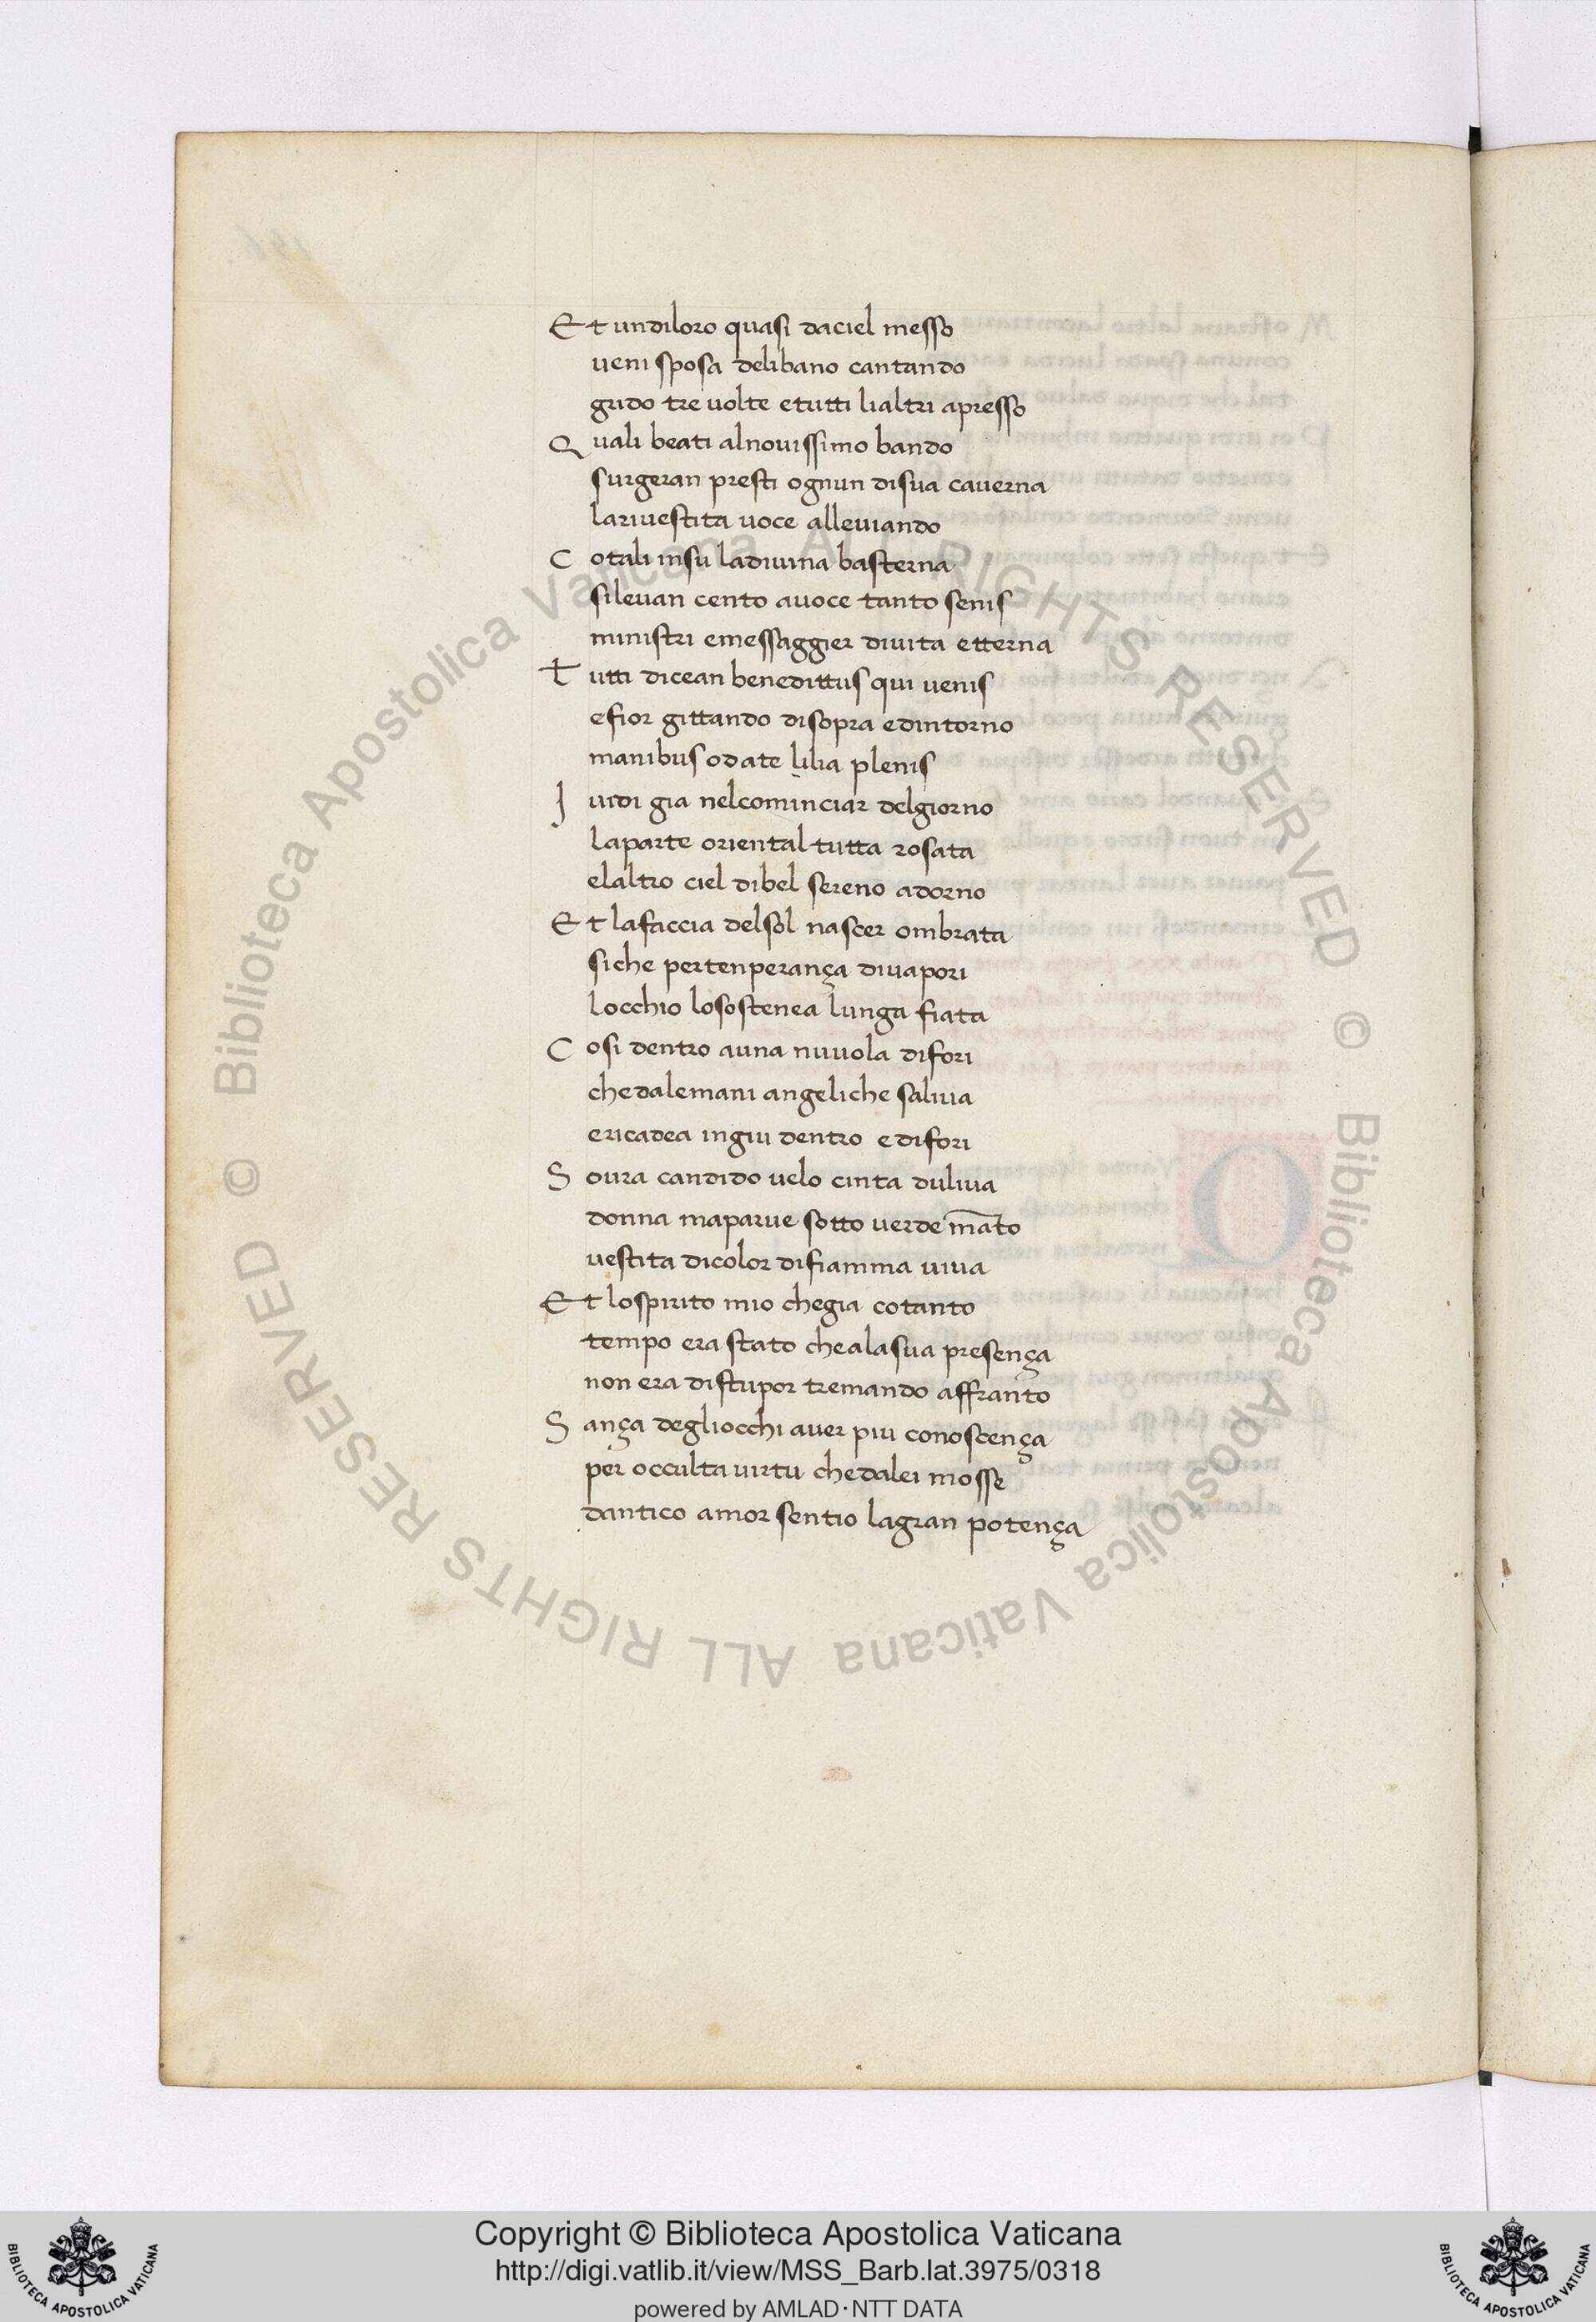 Et undiloro quasi daciel messo
veni sposa delibano cantando
grido tre volte etutti lialtri apresso
Quali beati alnovissimo bando
surgeran presti ognun disua caverna
larivestita voce alleviando
Cotali insu ladivina basterna
silevan cento avoce tanto senis
ministri emessaggier divita etterna
Tutti dicean benedittus qui venis
efior gittando disopra edintorno
manibus odate lilia plenis
Jvidi gia nelcominciar delgiorno
laparte oriental tutta rosata
elaltro ciel dibel sereno adorno
Et lafaccia delsol nascer ombrata
siche pertenperança divapori
locchio losostenea lunga fiata
Cosi dentro auna nuvola difori
chedalemani angeliche saliva
ericadea ingiu dentro edifori
Sovra candido velo cinta duliva
donna maparve sotto verde mãto
vestita dicolor difiamma viva
Et lospirito mio chegia cotanto
tempo era stato chealasua presença
non era distupor tremando affranto
Sança degliocchi aver piu conoscença
per occulta virtu chedalei mosse
dantico amor sentio lagran potença
© Biblioteca Apostolica Vaticana ALL RIGHTS RESERVED © Biblioteca Apostolica Vaticana ALL RIGHTS RESERVED
Copyright © Biblioteca Apostolica Vaticana
http://digi.vatlib.it/view/MSS_Barb.lat.3975/0318
powered by AMLAD·NTT DATA
BIBLIOTECA APOSTOLICA VATICANA
BIBLIOTECA APOSTOLICA VATICANA